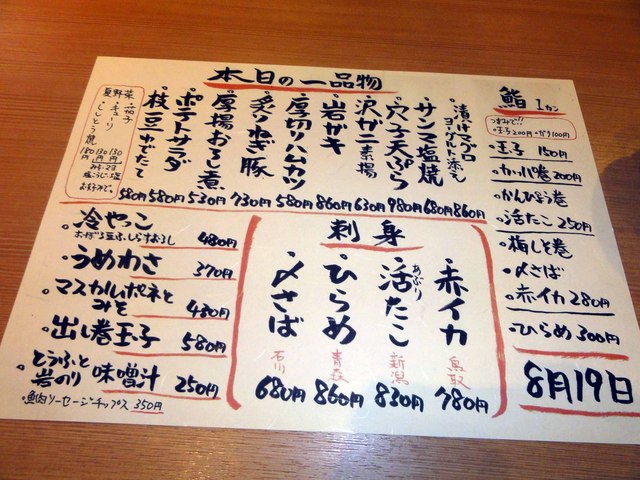 本日の一品物
・漬けマグロ
ヨーグルト添え
860円
・サンマ塩焼
680円
・穴子天ぷら
980円
・沢ガニ素揚
630円
・岩ガキ
860円
・厚切りハムカツ
580円
・炙りねぎ豚
730円
・厚揚おろし煮
530円
・ポテトサラダ
580円
・枝豆ゆでたて
580円
夏野菜
・茄子
・キューリ
・ししとう焼
130円
130円
180円
お好みで。
・冷やっこ
480円
・うめわさ
370円
・マスカルポーネと
みそ
480円
・出し巻玉子
580円
・とうふと
岩のり
味噌汁
250円
・魚肉ソーセージチップス 350円
刺身
・赤イカ
鳥取
780円
・あぶり
活たこ
新潟
830円
・ひらめ
青森
860円
・〆さば
石川
680円
鮨 1カン
つまみで!!
・玉子200円・ガリ100円
・玉子 150円
・かっぱ巻 200円
・かんぴょう巻
・活たこ 250円
・梅しそ巻
・〆さば
・赤イカ 280円
・ひらめ 300円
8月19日